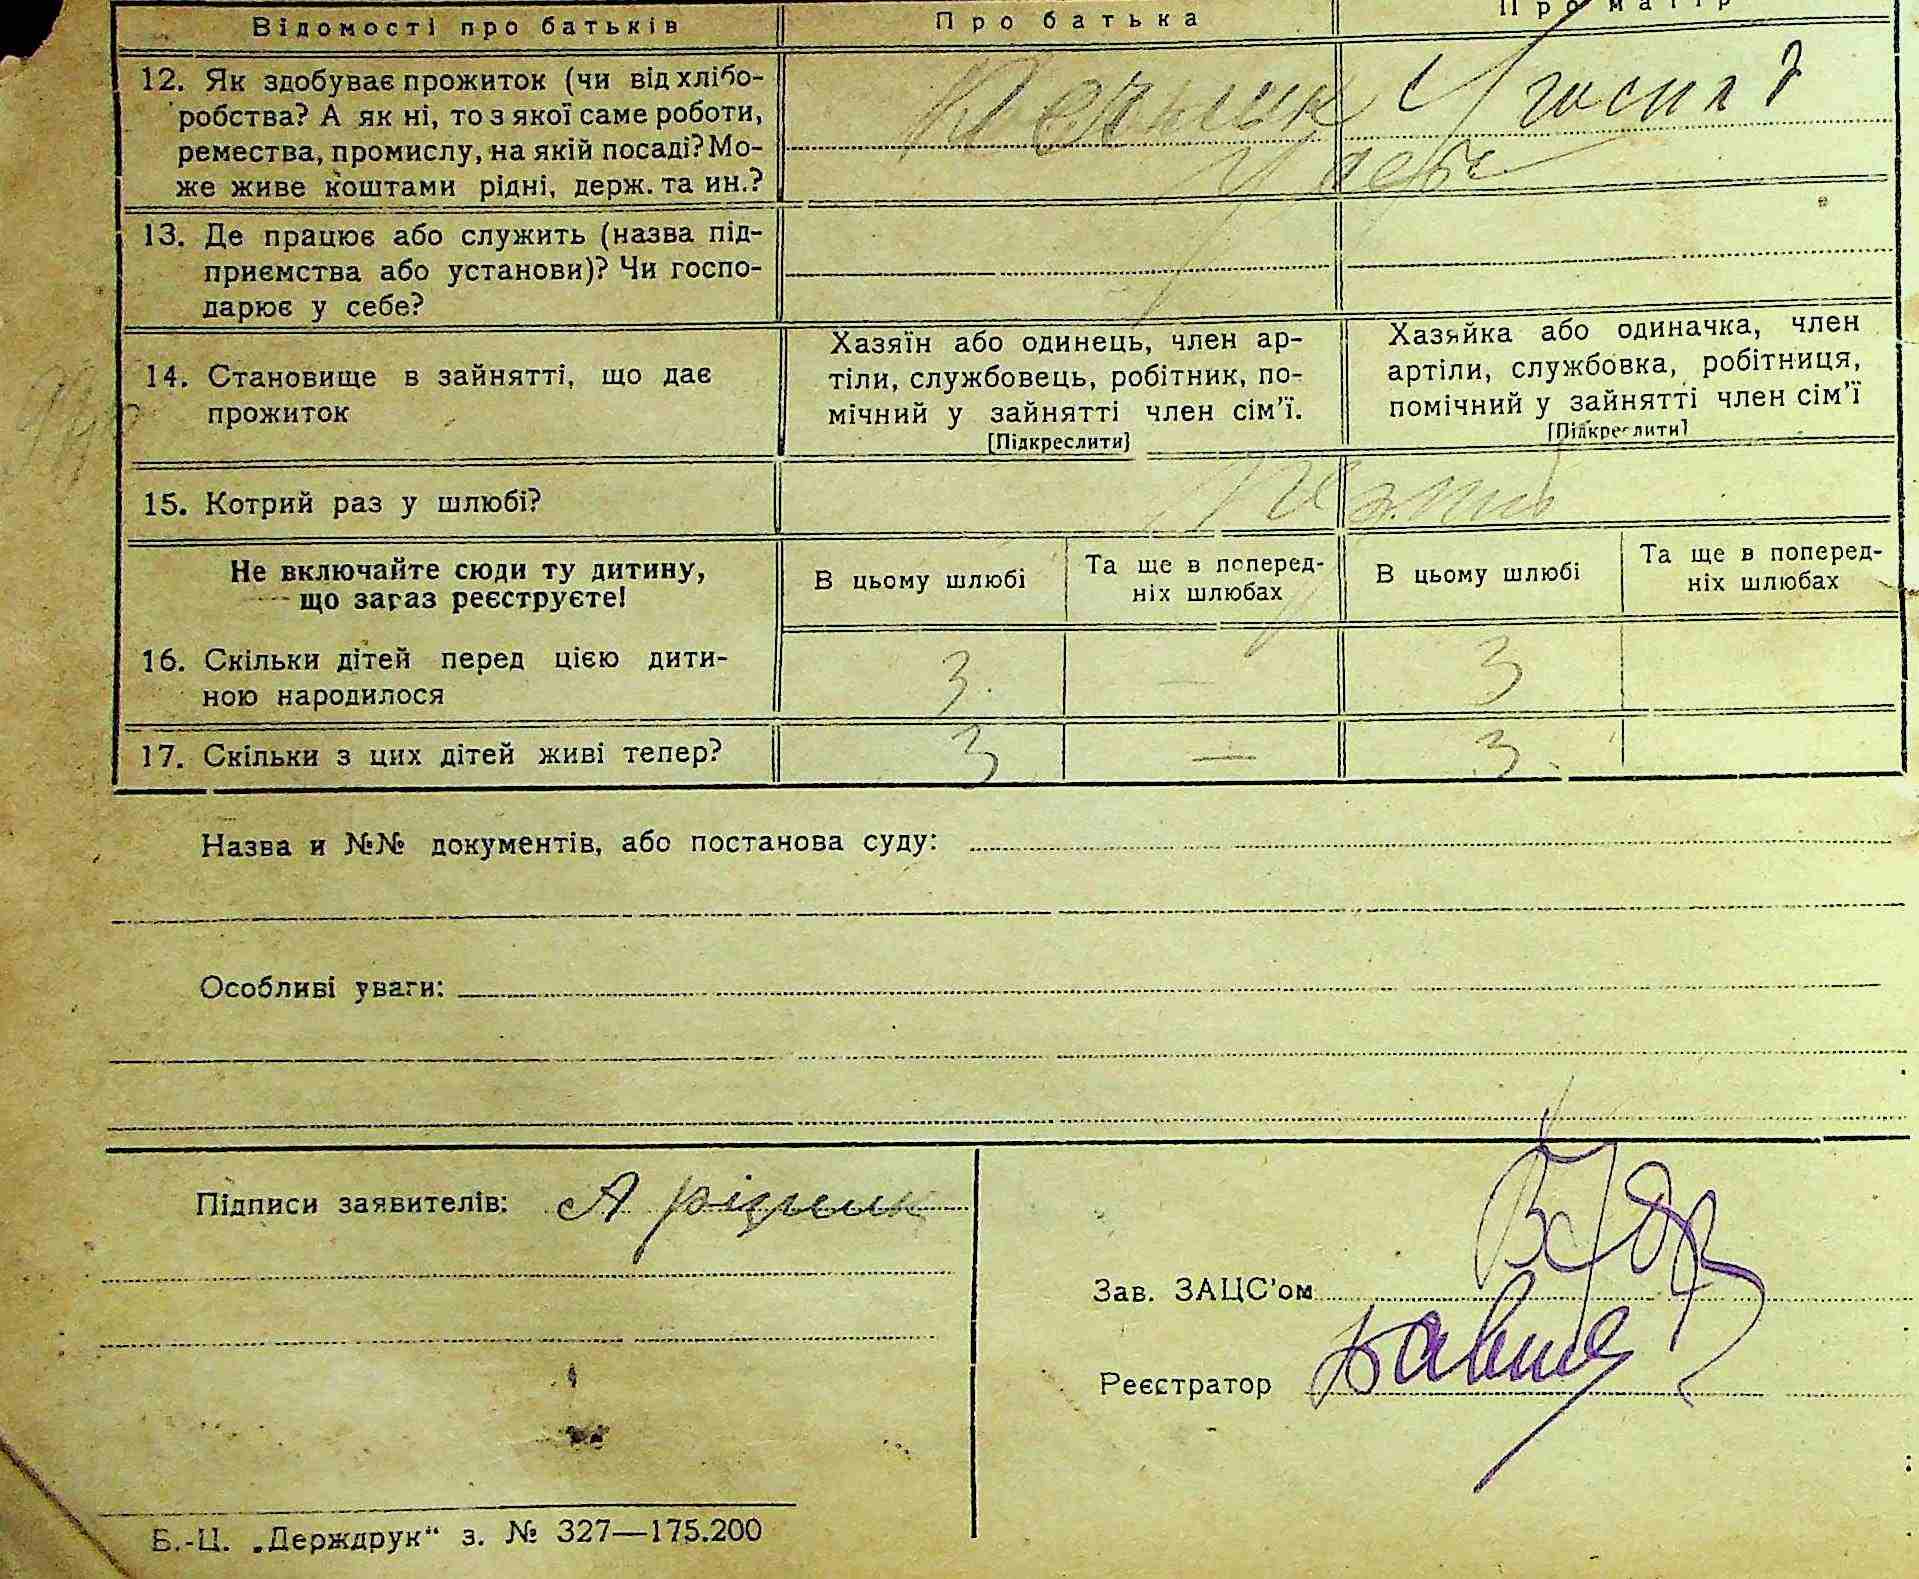 Відомості про батьків
Про батька
Про матір
12. Як здобуває прожиток (чи від хлібо-
робства? А як ні, то з якої саме роботи,
ремества, промислу, на якій посаді? Мо-
же живе коштами рідні, держ. та ин.?
13. Де працює або служить (назва під-
приємства або установи)? Чи госпо-
дарює у себе?
14. Становище в зайнятті, що дає
прожиток
Хазяїн або одинець, член ар-
тіли, службовець, робітник, по-
мічний у зайнятті член сім'ї.
[Підкреслити]
Хазяйка або одиначка, член
артіли, службовка, робітниця,
помічний у зайнятті член сім'ї
[Підкреслити]
15. Котрий раз у шлюбі?
Не включайте сюди ту дитину,
що зараз реєструєте!
В цьому шлюбі
Та ще в поперед-
ніх шлюбах
В цьому шлюбі
Та ще в поперед-
ніх шлюбах
16. Скільки дітей перед цією дити-
ною народилося
3 — 3
17. Скільки з цих дітей живі тепер?
3 — 3
Назва и №№ документів, або постанова суду:
Особливі уваги:
Підписи заявителів:
Зав. ЗАЦС'ом
Реєстратор
Б.-Ц. „Держдрук“ з. № 327—175.200